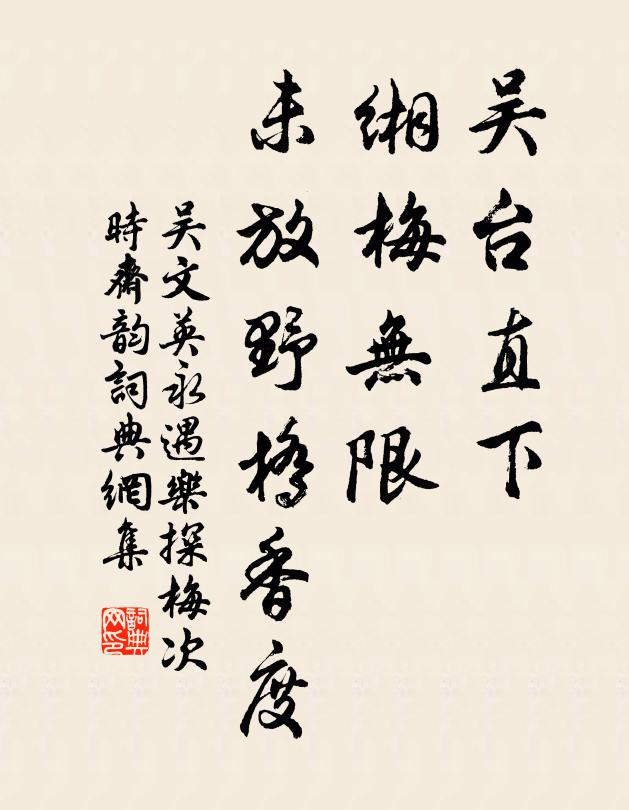 吴台直下
缃梅無限
未放野橋香度
吴文英永遇樂探梅次
時齋韵詞典網集
詞典网印